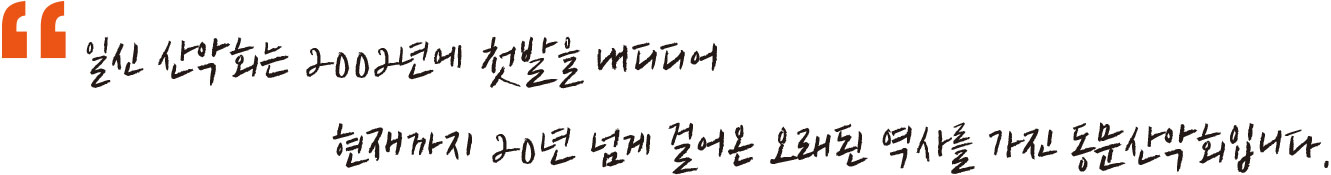 “ 일신 산악회는 2002년에 첫발을 내디디어
현재까지 20년 넘게 걸어온 오래된 역사를 가진 동문산악회입니다.